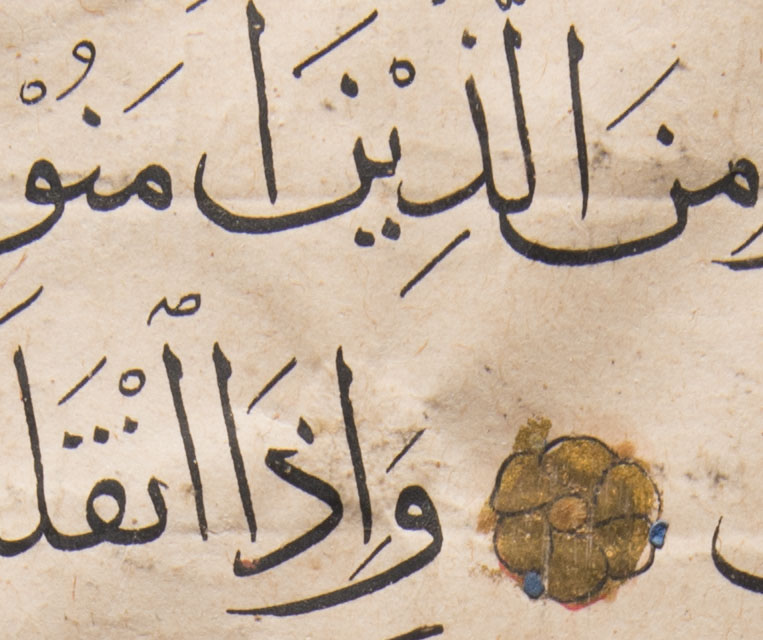 مِنَ الَّذِيْنَ اٰمَنُوْ
وَاِذَا ٱنْقَلَ